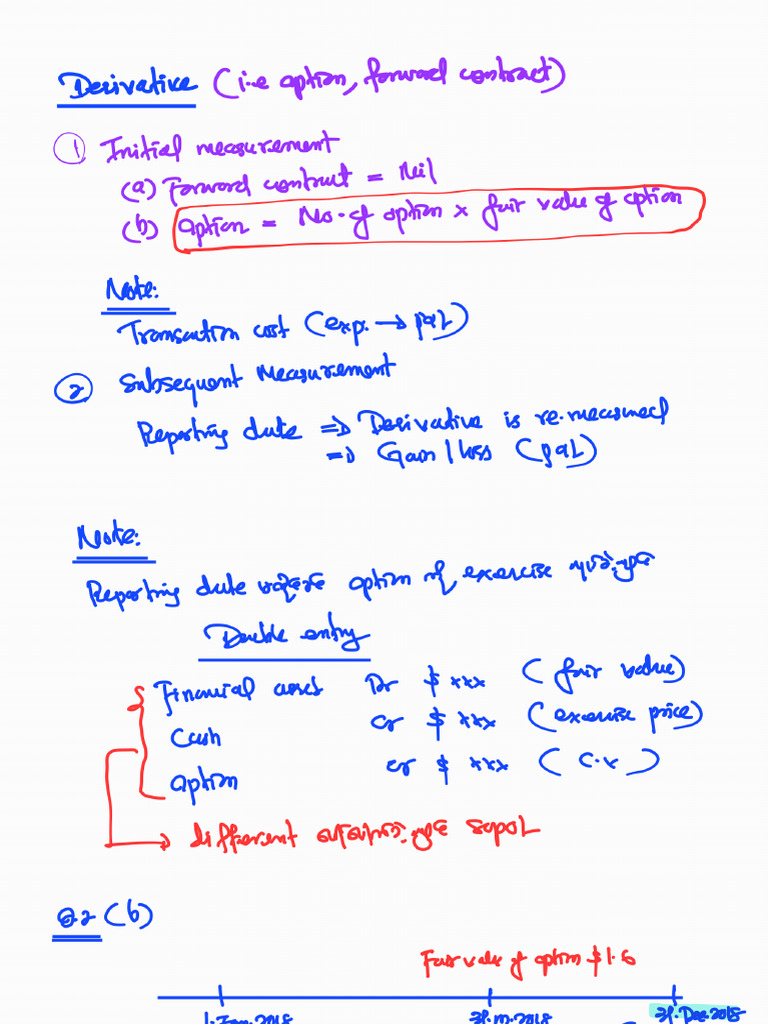 Derivative (i.e option, forward contract)
① Initial measurement
(a) Forward contract = Nil
(b) Option = No. of option x fair value of option
Note:
Transaction cost (exp. → P&L)
② Subsequent Measurement
Reporting date ⇒ Derivative is re-measured
⇒ Gain / loss (P&L)
Note:
Reporting date option of exercise
Double entry
Financial asset Dr $ xxx (fair value)
Cash Cr $ xxx (exercise price)
Option Cr $ xxx (C.V)
→ different SOPOL
Q2 (b)
Fair value of option $1.6
1.Jan.2018 31.10.2018 31.Dec.2018